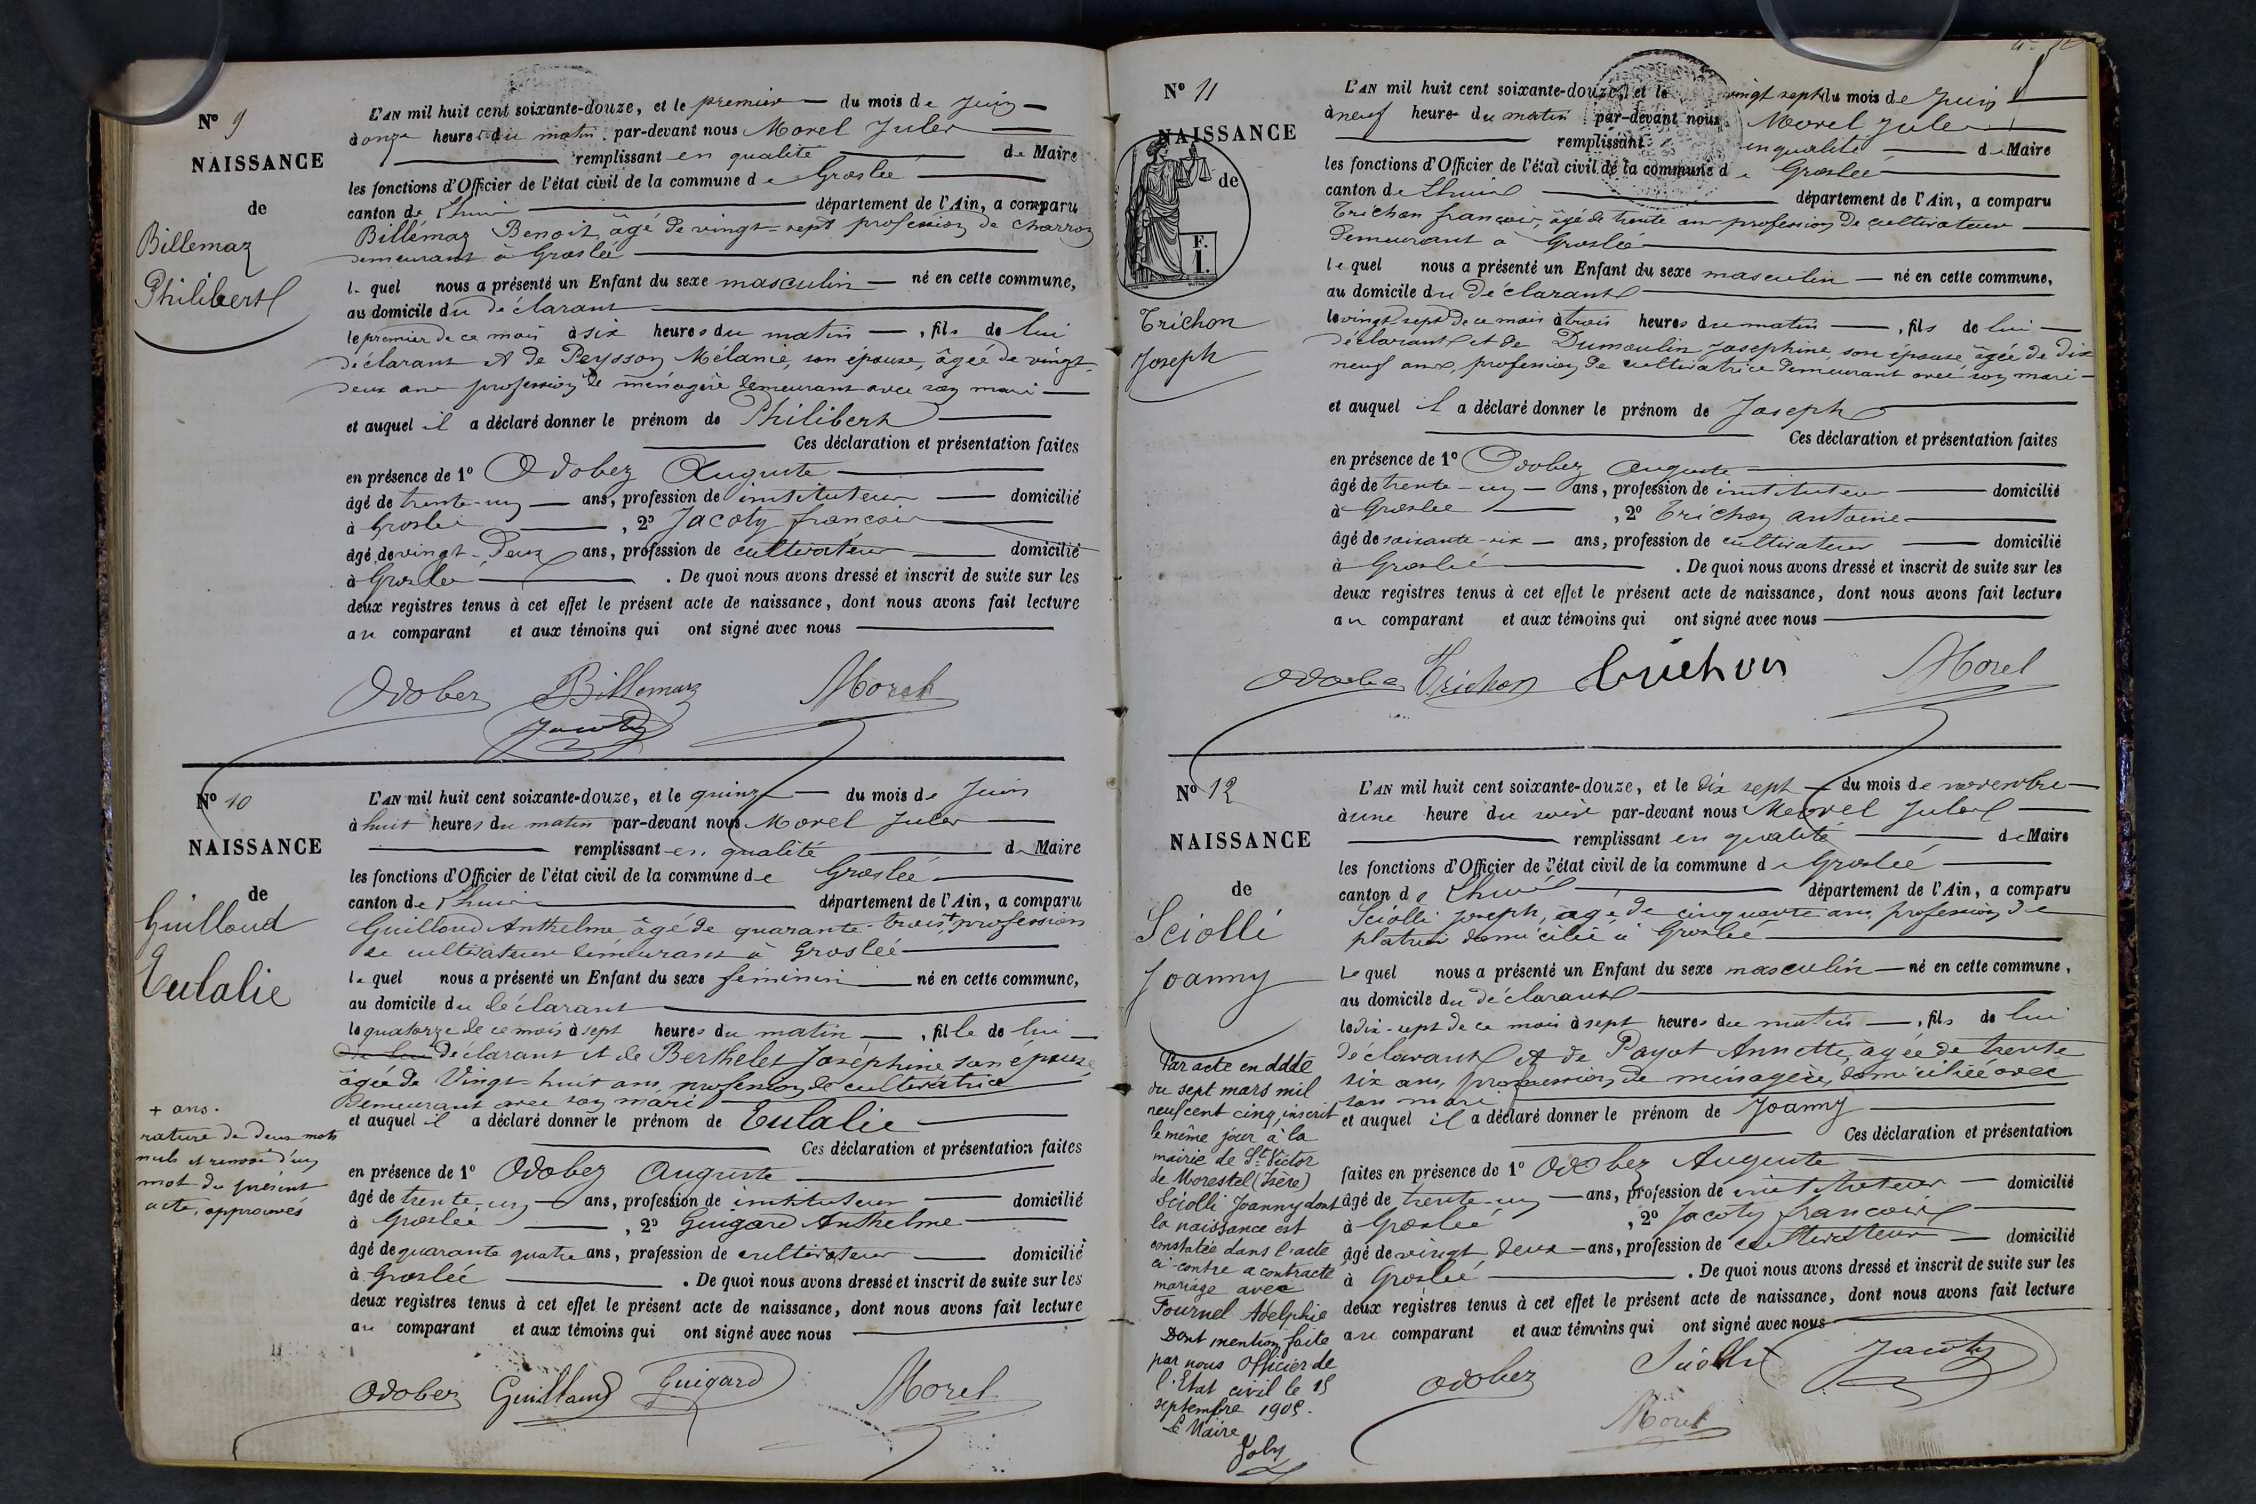 Nº 9
NAISSANCE
de
Billemaz
Philibert
L'AN mil huit cent soixante-douze, et le premier du mois de Juin
à onze heures du matin par-devant nous Morel Jules
remplissant en qualité de Maire
les fonctions d'Officier de l'état civil de la commune de Groslée
canton de Lhuis département de l'Ain, a comparu
Billemaz Benoit, âgé de vingt-sept profession de charron
demeurant à Groslée
lequel nous a présenté un Enfant du sexe masculin né en cette commune,
au domicile du déclarant
le premier de ce mois à six heures du matin, fils de lui
déclarant et de Peysson Mélanie, son épouse, âgée de vingt-
deux ans profession de ménagère demeurant avec son mari
et auquel il a déclaré donner le prénom de Philibert
Ces déclaration et présentation faites
en présence de 1º Odobez Auguste
âgé de trente-un ans, profession de instituteur domicilié
à Groslée, 2º Jacoty françois
âgé de vingt-deux ans, profession de cultivateur domicilié
à Groslée. De quoi nous avons dressé et inscrit de suite sur les
deux registres tenus à cet effet le présent acte de naissance, dont nous avons fait lecture
au comparant et aux témoins qui ont signé avec nous
Odobez Billemaz Morel
Jacoty
Nº 10
NAISSANCE
de
Guilloud
Eulalie
+ ans.
rature de deux mots
nuls et renvoi d'un
mot du présent
acte, approuvés
L'AN mil huit cent soixante-douze, et le quinze du mois de Juin
à huit heures du matin par-devant nous Morel Jules
remplissant en qualité de Maire
les fonctions d'Officier de l'état civil de la commune de Groslée
canton de Lhuis département de l'Ain, a comparu
Guilloud Anthelme âgé de quarante-trois + profession
de cultivateur demeurant à Groslée
lequel nous a présenté un Enfant du sexe féminin né en cette commune,
au domicile du déclarant
le quatorze de ce mois à sept heures du matin, fille de lui
de lui déclarant et de Berthelet Joséphine son épouse
âgée de Vingt-huit ans, profession de cultivatrice
demeurant avec son mari
et auquel il a déclaré donner le prénom de Eulalie
Ces déclaration et présentation faites
en présence de 1º Odobez Auguste
âgé de trente-un ans, profession de instituteur domicilié
à Groslée, 2º Guigard Anthelme
âgé de quarante quatre ans, profession de cultivateur domicilié
à Groslée. De quoi nous avons dressé et inscrit de suite sur les
deux registres tenus à cet effet le présent acte de naissance, dont nous avons fait lecture
au comparant et aux témoins qui ont signé avec nous
Odobez Guilloud Guigard Morel
Nº 11
NAISSANCE
de
F.
I.
Trichon
Joseph
L'AN mil huit cent soixante-douze, et le vingt sept du mois de Juin
à neuf heures du matin par-devant nous Morel Jules
remplissant en qualité de Maire
les fonctions d'Officier de l'état civil de la commune de Groslée
canton de Lhuis département de l'Ain, a comparu
Trichon françois, âgé de trente ans profession de cultivateur
demeurant à Groslée
lequel nous a présenté un Enfant du sexe masculin né en cette commune,
au domicile du déclarant
le vingt-sept de ce mois à trois heures du matin, fils de lui
déclarant et de Dumoulin Josephine, son épouse, âgée de dix
neuf ans, profession de cultivatrice demeurant avec son mari
et auquel il a déclaré donner le prénom de Joseph
Ces déclaration et présentation faites
en présence de 1º Odobez Auguste
âgé de trente-un ans, profession de instituteur domicilié
à Groslée, 2º Trichon Antoine
âgé de soixante-six ans, profession de cultivateur domicilié
à Groslée. De quoi nous avons dressé et inscrit de suite sur les
deux registres tenus à cet effet le présent acte de naissance, dont nous avons fait lecture
au comparant et aux témoins qui ont signé avec nous
Odobez Trichon Trichon Morel
Nº 12
NAISSANCE
de
Sciolli
Joanny
Par acte en date
du sept mars mil
neuf cent cinq, inscrit
le même jour à la
mairie de St Victor
de Morestel (Isère)
Sciolli Joanny dont
la naissance est
constatée dans l'acte
ci-contre a contracté
mariage avec
Fournel Adelphie
Dont mention faite
par nous Officier de
l'Etat civil le 15
septembre 1905.
Le Maire
Joly
L'AN mil huit cent soixante-douze, et le dix sept du mois de novembre
à une heure du soir par-devant nous Morel Jules
remplissant en qualité de Maire
les fonctions d'Officier de l'état civil de la commune de Groslée
canton de Lhuis département de l'Ain, a comparu
Sciolli Joseph, âgé de cinquante ans, profession de
platrier domicilié à Groslée
lequel nous a présenté un Enfant du sexe masculin né en cette commune,
au domicile du déclarant
le dix-sept de ce mois à sept heures du matin, fils de lui
déclarant et de Payot Annette, âgée de trente
six ans, profession de ménagère, domiciliée avec
son mari
et auquel il a déclaré donner le prénom de Joanny
Ces déclaration et présentation
faites en présence de 1º Odobez Auguste
âgé de trente-un ans, profession de instituteur domicilié
à Groslée, 2º Jacoty françois
âgé de vingt deux ans, profession de cultivateur domicilié
à Groslée. De quoi nous avons dressé et inscrit de suite sur les
deux registres tenus à cet effet le présent acte de naissance, dont nous avons fait lecture
au comparant et aux témoins qui ont signé avec nous
Odobez Sciolli Jacoty
Morel